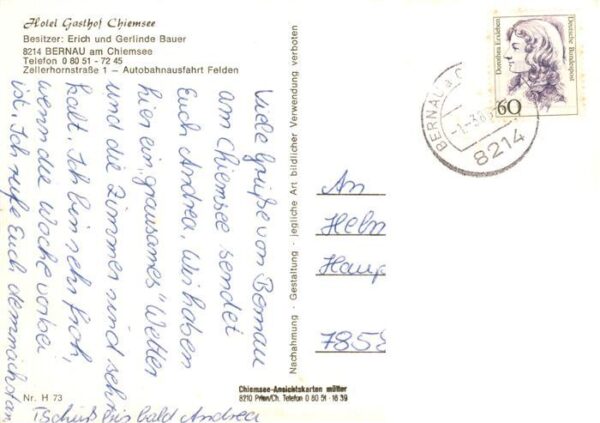 Hotel Gasthof Chiemsee
Besitzer: Erich und Gerlinde Bauer
8214 BERNAU am Chiemsee
Telefon 0 80 51 - 72 45
Zellerhornstraße 1 — Autobahnausfahrt Felden
Viele Grüße von Bernau
am Chiemsee sendet
Euch Andrea. Wir haben
hier ein „grausames" Wetter
und die Zimmer sind sehr
kalt. Ich bin sehr froh,
wenn die Woche vorbei
ist. Ich rufe Euch demnächst an
Tschüß bis bald Andrea
Nr. H 73
Nachahmung · Gestaltung · jegliche Art bildlicher Verwendung verboten
Chiemsee-Ansichtskarten müller
8210 Prien/Ch. Telefon 0 80 51 - 16 39
Dorothea Erxleben
Deutsche Bundespost
60
BERNAU a. C
8214
An
Helm
Haup
7858